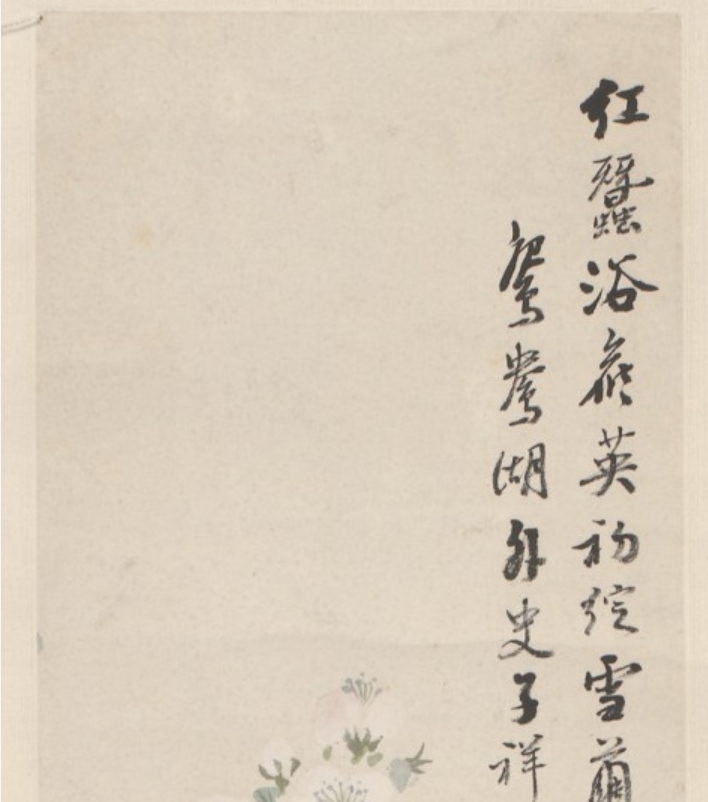 紅蠶浴罷英初綻雪繭
鴛鴦湖外史子祥